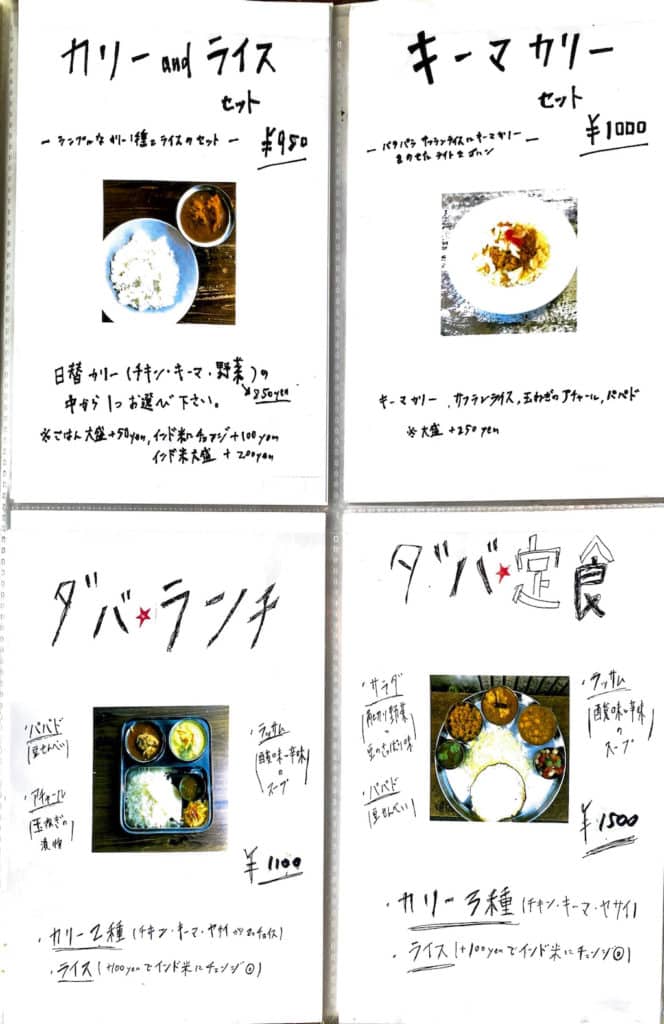 カリー and ライス
セット
ー シンプルな カリー1種とライスのセット ー
¥950
日替カリー(チキン・キーマ・野菜)の
↘850yen
中から1つお選び下さい。
※ごはん大盛+50yen,インド米にチェンジ+100yen
インド米大盛 +200yen
キーマ カリー
セット
¥1000
ー パラパラ サフランライスにキーマカリー
をのせた ライトなゴハン ー
キーマカリー、サフランライス,玉ねぎのアチャール,パパド
※大盛 +250yen
ダバ★ランチ
・パパド
(豆せんべい)
・アチャール
(玉ねぎの
漬物)
・ラッサム
(酸味と辛味
の
スープ)
¥1100
・カリー2種(チキン・キーマ・ヤサイ からチョイス)
・ライス(+100yenでインド米にチェンジ◎)
ダバ★定食
・サラダ
野菜
豆のさっぱり味
・パパド
(豆せんべい)
・ラッサム
(酸味と辛味
の
スープ)
¥1500
・カリー3種(チキン・キーマ・ヤサイ)
・ライス(+100yenでインド米にチェンジ◎)